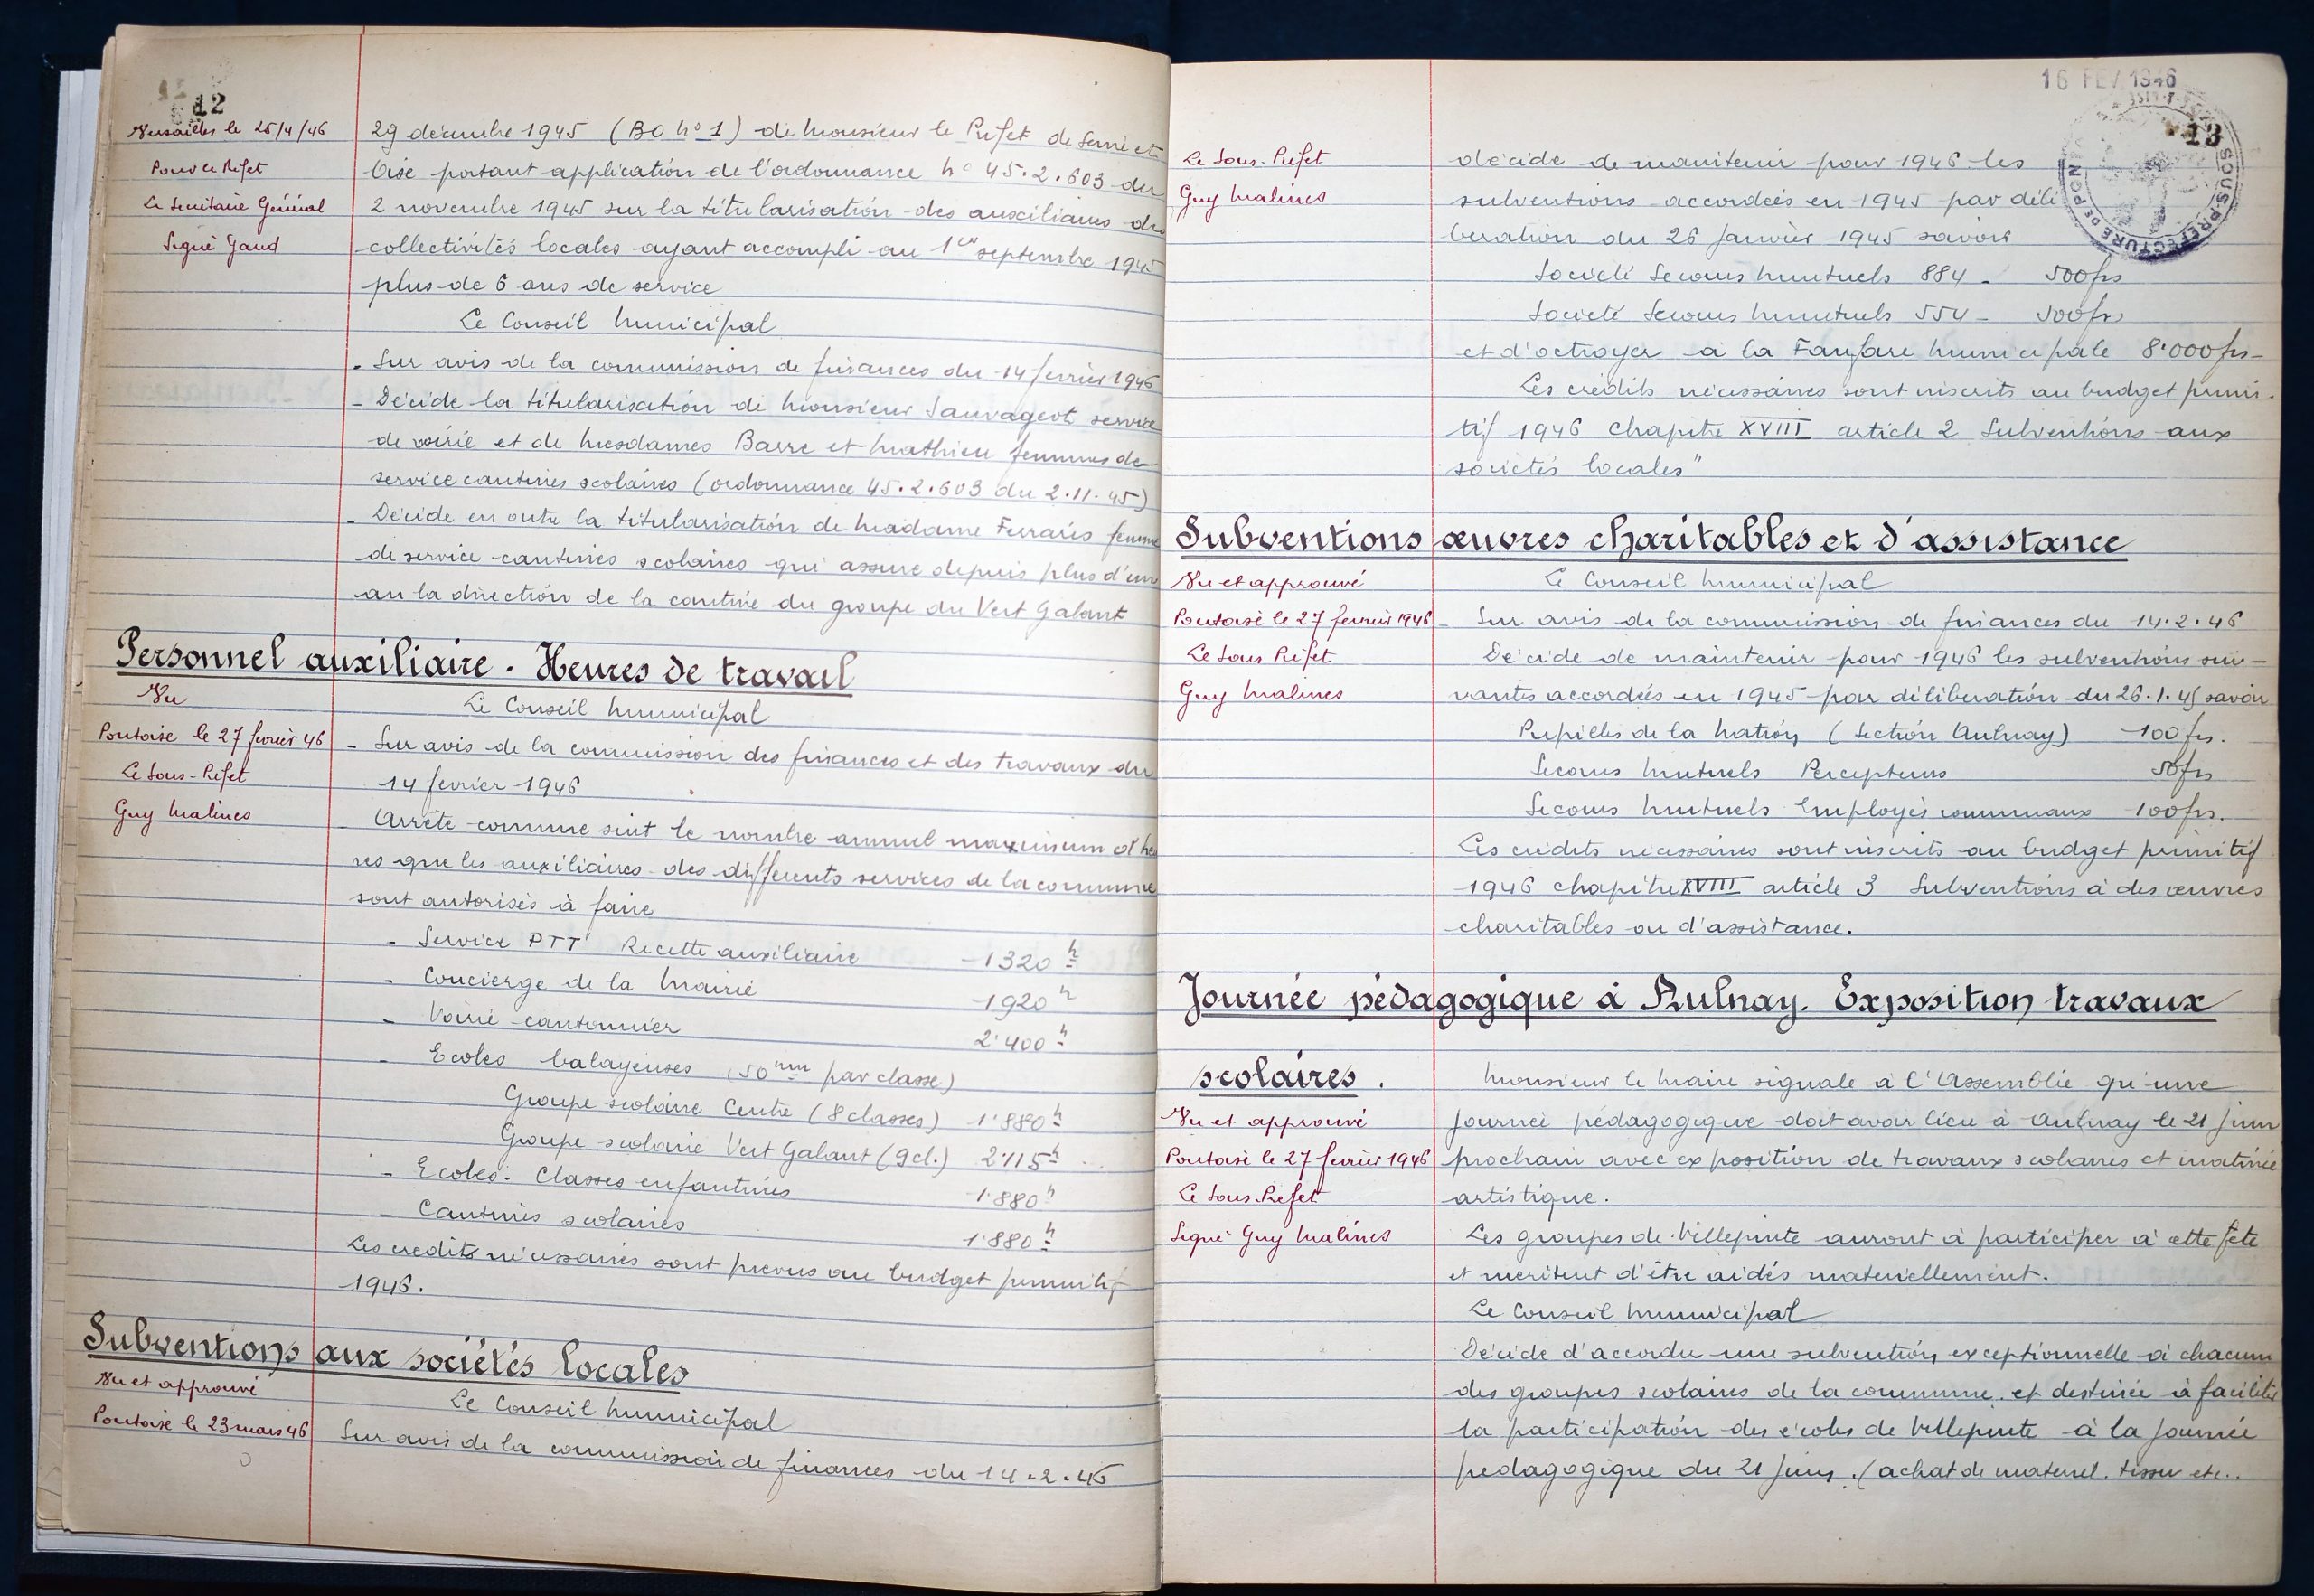 12
Versailles le 25/4/46
Pour le Préfet
Le Secrétaire Général
Signé Gaud
29 décembre 1945 (BO No 1) de Monsieur le Préfet de Seine et
Oise portant application de l'ordonnance No 45.2.603 du
2 novembre 1945 sur la titularisation des auxiliaires des
collectivités locales ayant accompli au 1er septembre 1945
plus de 6 ans de service
Le Conseil Municipal
- Sur avis de la commission de finances du 14 février 1946
- Décide la titularisation de Monsieur Sauvageot service
de voirie et de Mesdames Barre et Mathieu femmes de
service cantines scolaires (ordonnance 45.2.603 du 2.11.45)
- Décide en outre la titularisation de Madame Ferraris femme
de service cantines scolaires qui assure depuis plus d'un
an la direction de la cantine du groupe du Vert Galant
Personnel auxiliaire. Heures de travail
Vu
Pontoise le 27 février 46
Le Sous-Préfet
Guy Malines
Le Conseil Municipal
- Sur avis de la commission des finances et des travaux du
14 février 1946
- Arrête comme suit le nombre annuel maximum d'heu
res que les auxiliaires des différents services de la commune
sont autorisés à faire
- Service PTT Recette auxiliaire 1320 h
- Concierge de la Mairie 1920 h
- Voirie cantonnier 2.400 h
- Ecoles balayeuses (50 mn par classe)
Groupe scolaire Centre (8 classes) 1.880 h
Groupe scolaire Vert Galant (9 cl.) 2.115 h
- Ecoles. Classes enfantines 1.880 h
- Cantines scolaires 1.880 h
Les crédits nécessaires sont prévus au budget primitif
1946.
Subventions aux sociétés locales
Vu et approuvé
Pontoise le 23 mars 46
Le Conseil Municipal
Sur avis de la commission de finances du 14.2.46
16 FEV 1946
13
SOUS-PREFECTURE DE PON
Le Sous-Préfet
Guy Malines
décide de maintenir pour 1946 les
subventions accordées en 1945 par déli
bération du 26 Janvier 1945 savoir
Société Secours Mutuels 884 - 500 frs
Société Secours Mutuels 554 - 500 frs
et d'octroyer à la Fanfare Municipale 8.000 frs -
Les crédits nécessaires sont inscrits au budget primi-
tif 1946 chapitre XVIII article 2 Subventions aux
sociétés locales"
Subventions œuvres charitables et d'assistance
Vu et approuvé
Pontoise le 27 février 1946
Le Sous Préfet
Guy Malines
Le Conseil Municipal
- Sur avis de la commission de finances du 14.2.46
Décide de maintenir pour 1946 les subventions sui-
vantes accordées en 1945 par délibération du 26.1.45 savoir
Pupilles de la Nation (Section Aulnay) 100 frs.
Secours Mutuels Percepteurs 50 frs
Secours Mutuels Employés communaux 100 frs.
Les crédits nécessaires sont inscrits au budget primitif
1946 chapitre XVIII article 3 Subventions à des œuvres
charitables ou d'assistance.
Journée pédagogique à Aulnay. Exposition travaux
scolaires.
Vu et approuvé
Pontoise le 27 février 1946
Le Sous Préfet
Signé Guy Malines
Monsieur le Maire signale à l'Assemblée qu'une
Journée pédagogique doit avoir lieu à Aulnay le 21 Juin
prochain avec exposition de travaux scolaires et matinée
artistique.
Les groupes de Villepinte auront à participer à cette fête
et méritent d'être aidés matériellement.
Le Conseil Municipal
Décide d'accorder une subvention exceptionnelle à chacun
des groupes scolaires de la commune. et destinée à faciliter
la participation des écoles de Villepinte à la Journée
pédagogique du 21 Juin. (achat de matériel. tissu etc..